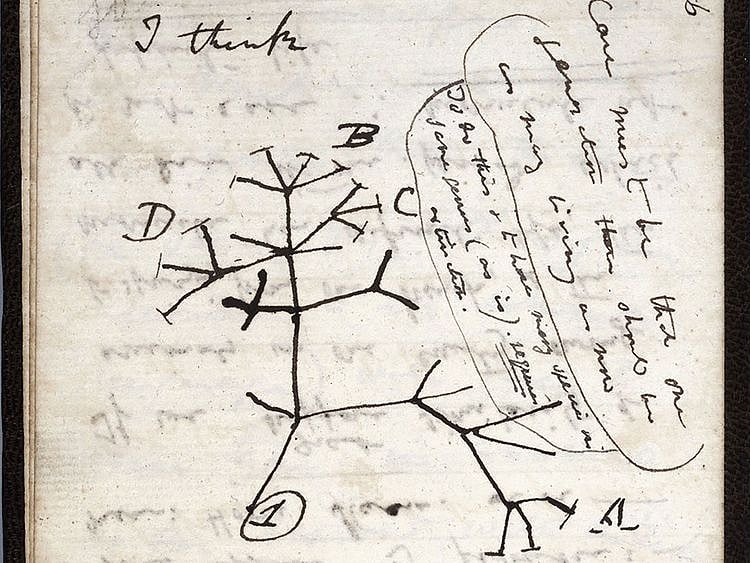 6
I think
Case must be that one
generation then should be
as many living as now
To do this & to have many species in
same genus (as is). requires
extinction.
B
C
D
A
1